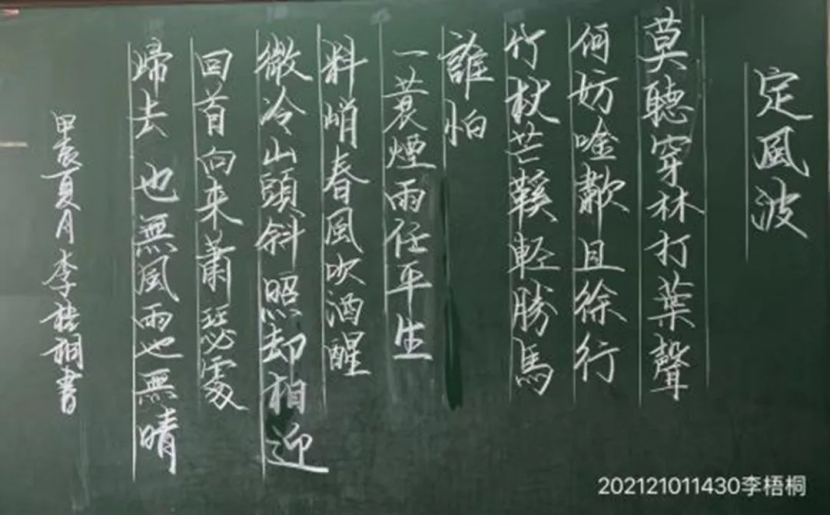 定風波
莫聽穿林打葉聲
何妨唫歗且徐行
竹杖芒鞵輕勝馬
誰怕
一蓑煙雨任平生
料峭春風吹酒醒
微冷山頭斜照却相迎
回首向来蕭瑟處
歸去 也無風雨也無晴
甲辰夏月李梧桐書
202121011430李梧桐